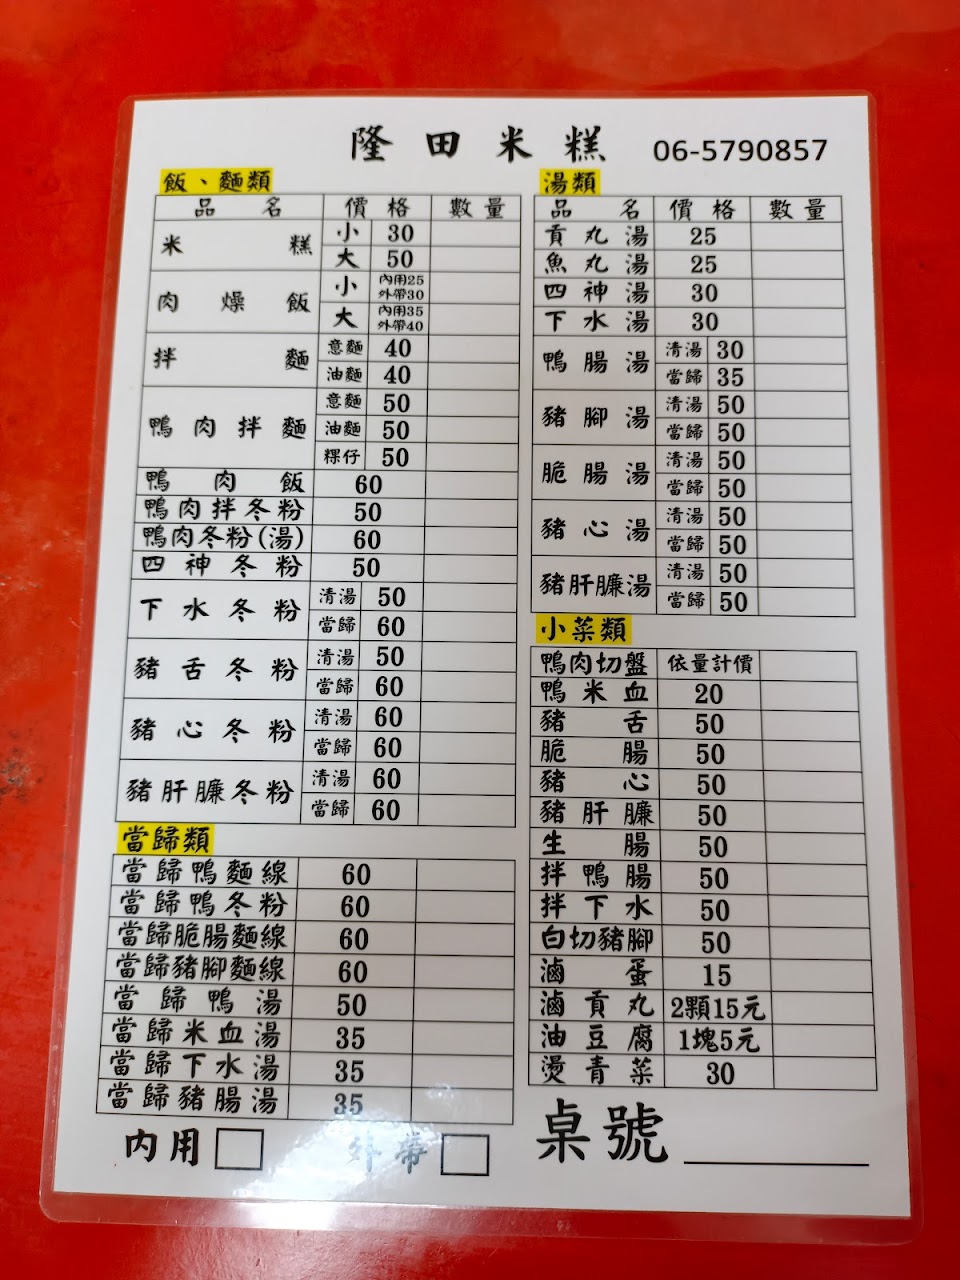 隆田米糕 06-5790857
飯、麵類
品名 價格 數量
米糕 小 30
大 50
肉燥飯 小 內用25 外帶30
大 內用35 外帶40
拌麵 意麵 40
油麵 40
鴨肉拌麵 意麵 50
油麵 50
粿仔 50
鴨肉飯 60
鴨肉拌冬粉 50
鴨肉冬粉(湯) 60
四神冬粉 50
下水冬粉 清湯 50
當歸 60
豬舌冬粉 清湯 50
當歸 60
豬心冬粉 清湯 60
當歸 60
豬肝臁冬粉 清湯 60
當歸 60
當歸類
當歸鴨麵線 60
當歸鴨冬粉 60
當歸脆腸麵線 60
當歸豬腳麵線 60
當歸鴨湯 50
當歸米血湯 35
當歸下水湯 35
當歸豬腸湯 35
內用 外帶
湯類
品名 價格 數量
貢丸湯 25
魚丸湯 25
四神湯 30
下水湯 30
鴨腸湯 清湯 30
當歸 35
豬腳湯 清湯 50
當歸 50
脆腸湯 清湯 50
當歸 50
豬心湯 清湯 50
當歸 50
豬肝臁湯 清湯 50
當歸 50
小菜類
鴨肉切盤 依量計價
鴨米血 20
豬舌 50
脆腸 50
豬心 50
豬肝臁 50
生腸 50
拌鴨腸 50
拌下水 50
白切豬腳 50
滷蛋 15
滷貢丸 2顆15元
油豆腐 1塊5元
燙青菜 30
桌號